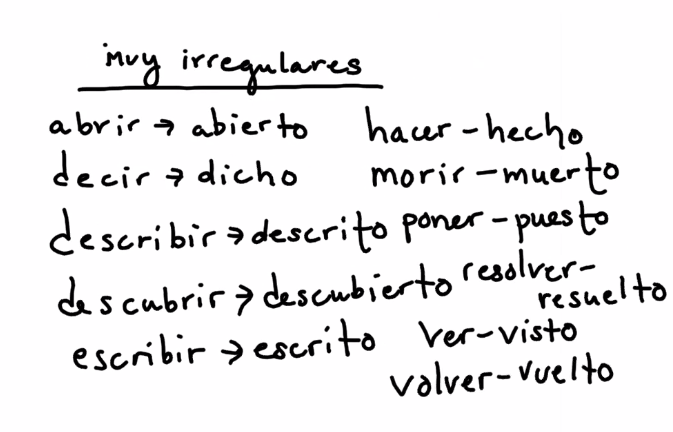 muy irregulares
abrir → abierto
decir → dicho
describir → descrito
descubrir → descubierto
escribir → escrito
hacer - hecho
morir - muerto
poner - puesto
resolver-
resuelto
ver - visto
volver - vuelto